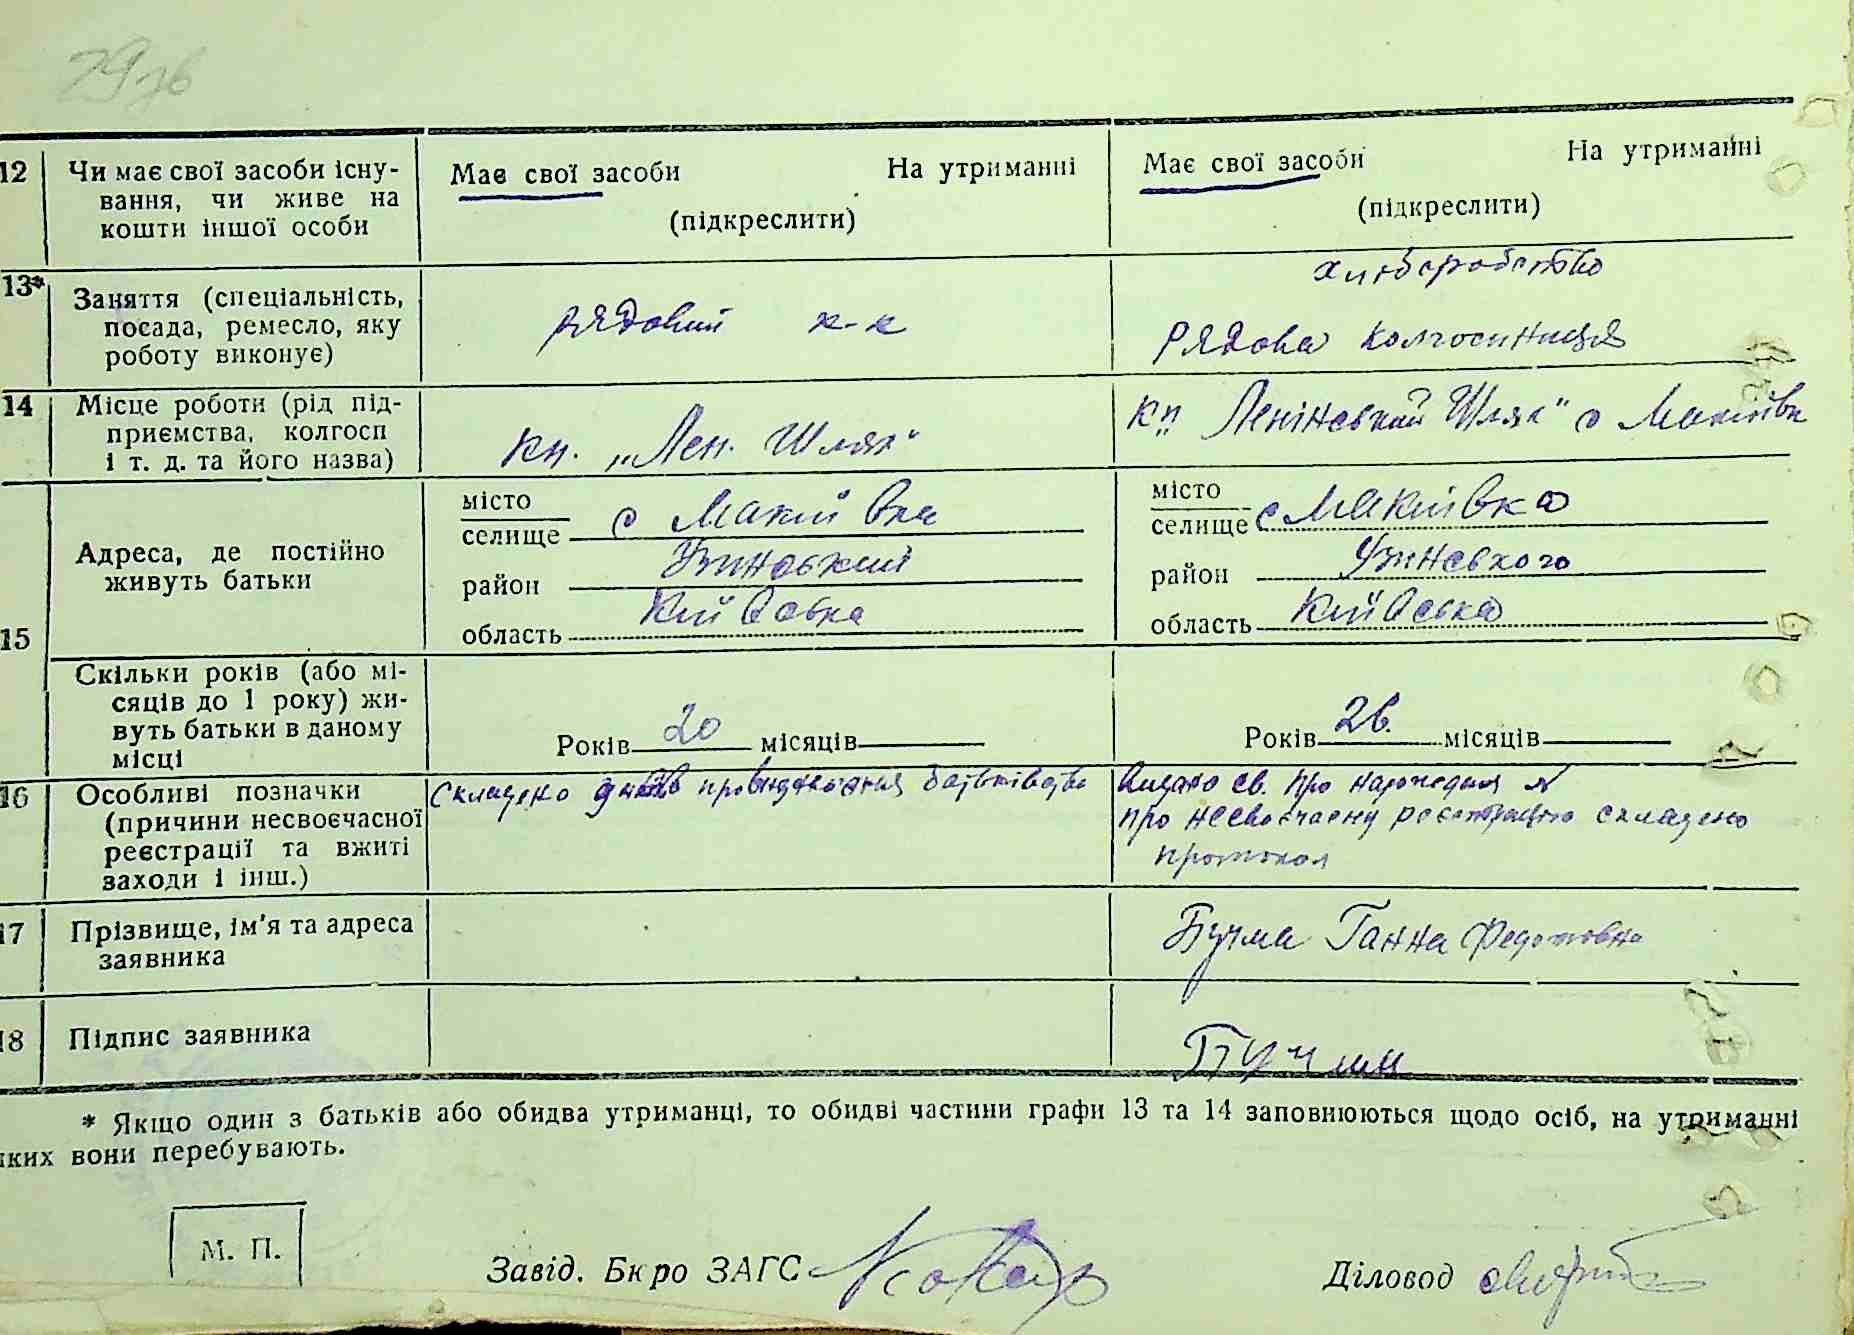 29зв
12 Чи має свої засоби існу-
вання, чи живе на
кошти іншої особи
Має свої засоби На утриманні
(підкреслити)
Має свої засоби На утриманні
(підкреслити)
13* Заняття (спеціальність,
посада, ремесло, яку
роботу виконує)
рядовий к-к
хліборобство
рядова колгоспниця
14 Місце роботи (рід під-
приємства, колгосп
і т. д. та його назва)
кп. „Лен. Шлях"
кп „Ленінський Шлях" с Макіївка
15 Адреса, де постійно
живуть батьки
місто
селище с Макіївка
район Узинський
область Київська
місто
селище с Макіївка
район Узинського
область Київська
Скільки років (або мі-
сяців до 1 року) жи-
вуть батьки в даному
місці
Років 20 місяців
Років 26. місяців
16 Особливі позначки
(причини несвоєчасної
реєстрації та вжиті
заходи і інш.)
Складено про батьківство
Видано св. про народження
про несвоєчасну реєстрацію складено
протокол
17 Прізвище, ім'я та адреса
заявника
Бучма Ганна Федотовна
18 Підпис заявника
Бучма
* Якщо один з батьків або обидва утриманці, то обидві частини графи 13 та 14 заповнюються щодо осіб, на утриманні
яких вони перебувають.
М. П.
Завід. Бюро ЗАГС
Діловод